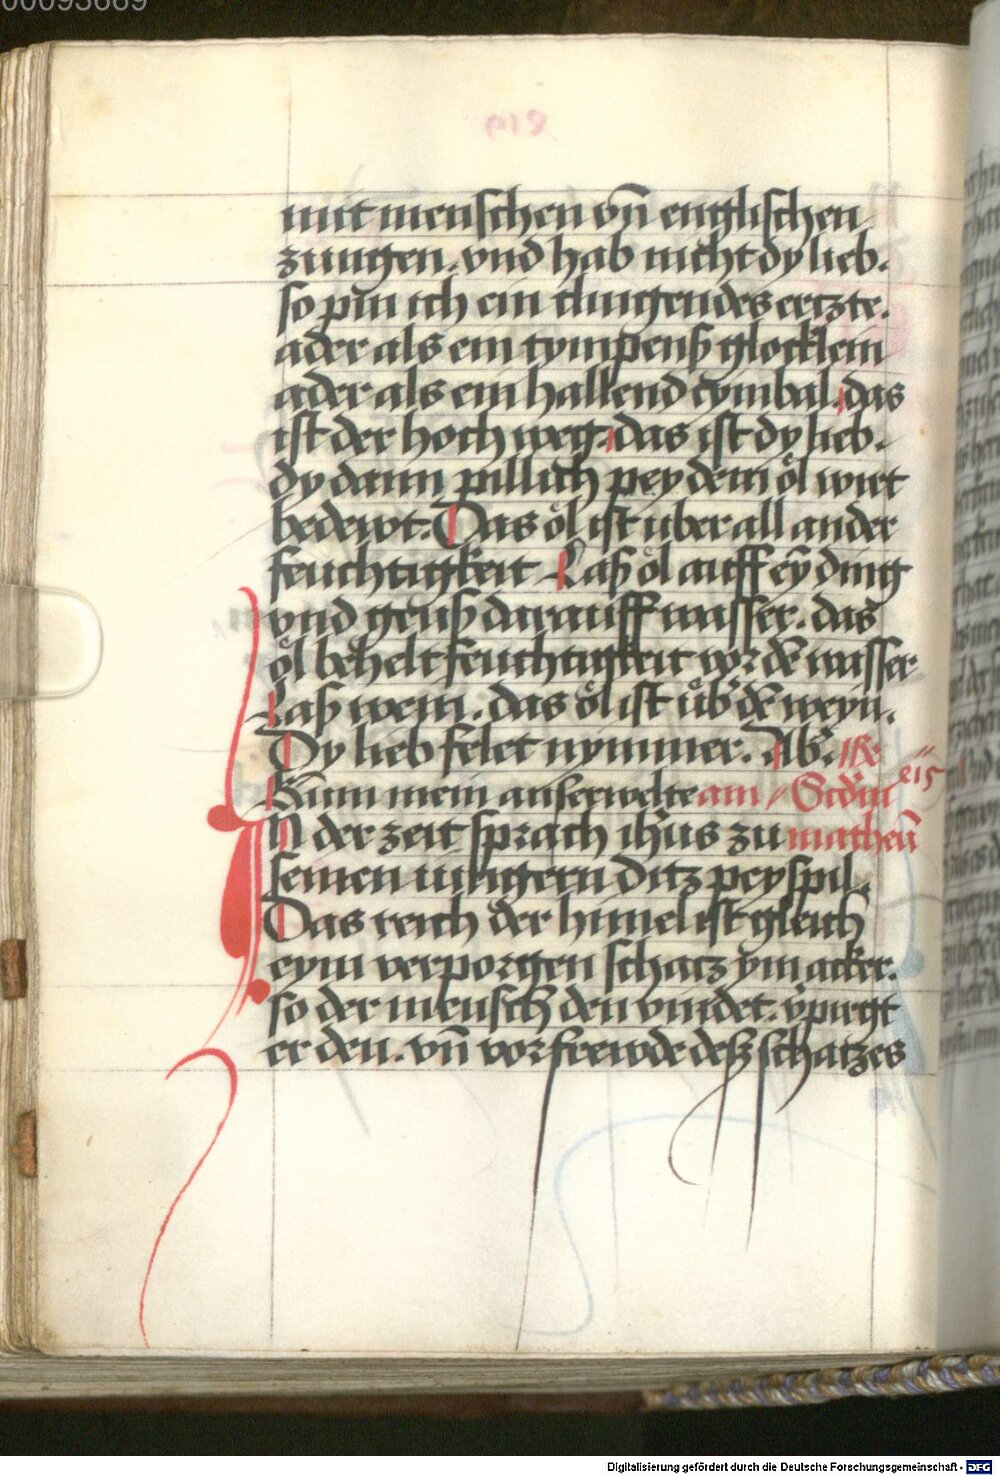 mit menschen vn̄ englischen
zungen. vnd hab nicht dy lieb.
so pin ich ein clingendes ertzte.
ader als ein tympenß glocklein
ader als ein hallend cymbal. das
ist der hoch weg. das ist dy lieb.
dy dann pillich pey dem öl wirt
bedewt. Das öl ist uber all ander
feuchtigkeit Laß öl auff ey̅ ding
vnd geuß darauff wasser. das
öl behelt feuchtigkeit vor dē wasser
Laß wein. das öl ist üb' dē weyn.
Dy lieb felet nymmer. Ab'.
Kum mein auserwelte am
In der zeit sprach ihūs zu matheū
seinen iungern ditz peyspil.
Das reich der himel ist gleich
eym verporgen schatz ym acker.
so der mensch den vindet. v'pirgt
er den. vn̄ vor frewde deß schatzes
Digitalisierung gefördert durch die Deutsche Forschungsgemeinschaft - DFG